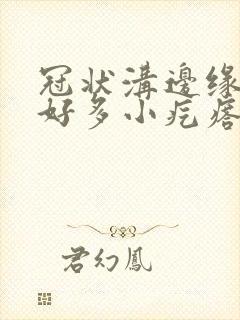 冠状溝邊缘
好多小疙瘩
君幻鳳